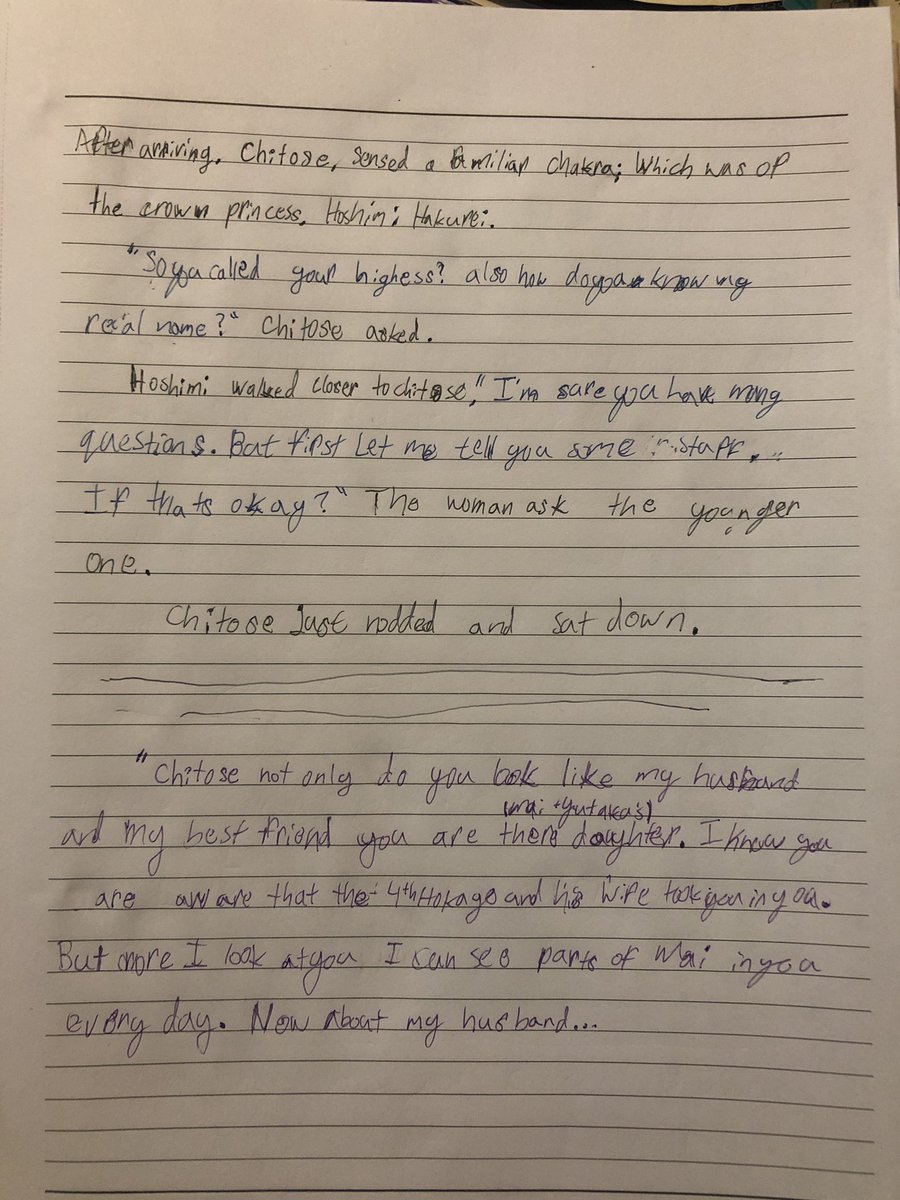 After arriving, Chitose, sensed a familiar chakra; Which was of
the crown princess, Hoshimi Hakurei.
"So you called your highess? also how do you know my
real name?" Chitose asked.
Hoshimi walked closer to chitose," I'm sure you have many
questions. But first Let me tell you some stuff.
If thats okay?" The woman ask the younger
one.
Chitose Just nodded and sat down.
"Chitose not only do you look like my husband
(Mai + Yutaka's)
and my best friend you are there daughter. I know you
are aware that the 4th Hokage and his wife took you in you.
But more I look at you I can see parts of Mai in you
every day. Now about my husband...